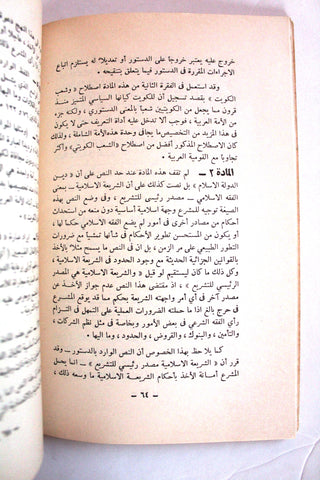 خروج عليه يعتبر خروجا على الدستور أو تعديلا له يستلزم اتباع
الاجراءات المقررة في الدستور فيما يتعلق بتنقيحه .
وقد استعمل في الفقرة الثانية من هذه المادة اصطلاح « وشعب
الكويت » بقصد تسجيل أن للكويت كيانها السياسي المتميز منذ
القدم مما يجعل من الكويتيين شعبا بالمعنى الدستوري وان كان جزءا
من الأمة العربية ، لذلك لا تدخل عليه أداة التعريف حتى لا يكون
في هذا المزيد من التخصيص ما يجافي وحدة هذه الأمة الشاملة وقد
كان الاصطلاح المذكور أفضل من اصطلاح « والشعب الكويتي » كذلك
تجاوبا مع القومية العربية .
المادة ٢ ــ لم تقف هذه المادة عند حد النص على أن « دين
الدولة الاسلام » بل نصت كذلك على أن الشريعة الاسلامية ــ بمعنى
الفقه الاسلامي ــ مصدر رئيسي للتشريع ، وفي وضع النص بهذه
الصيغة توجيه للمشرع وجهة اسلامية أساسية دون منعه من استحداث
أحكام من مصادر أخرى في أمور لم يضع الفقه الاسلامي حكما لها ،
أو يكون من المستحسن تطوير الأحكام في شأنها تمشيا مع ضرورات
التطور الطبيعي على مر الزمن ، بل ان في النص ما يسمح مثلا بالأخذ
بالقوانين الجزائية الحديثة مع وجود الحدود في الشريعة الاسلامية ،
وكل ذلك ما كان ليستقيم لو قيل « والشريعة الاسلامية هي المصدر
الرئيسي للتشريع » ، اذ مقتضى هذا النص عدم جواز الأخذ عن
مصدر آخر في أي أمر واجهته الشريعة بحكم مما قد يوقع المشرع
في حرج بالغ اذا ما حملته الضرورات العملية على التمهل في التزام
رأي الفقه الشرعي في بعض الأمور وبخاصة في مثل نظم الشركات ،
والتأمين ، والبنوك ، والقروض ، والحدود ، وما اليها .
كما يلاحظ بهذا الخصوص أن النص الوارد بالدستور ــ وقد
قرر أن « الشريعة الاسلامية مصدر رئيسي للتشريع » ــ انما يحمل
المشرع أمانة الأخذ بأحكام الشريعة الاسلامية ما وسعه ذلك ،
ــ ٦٤ ــ